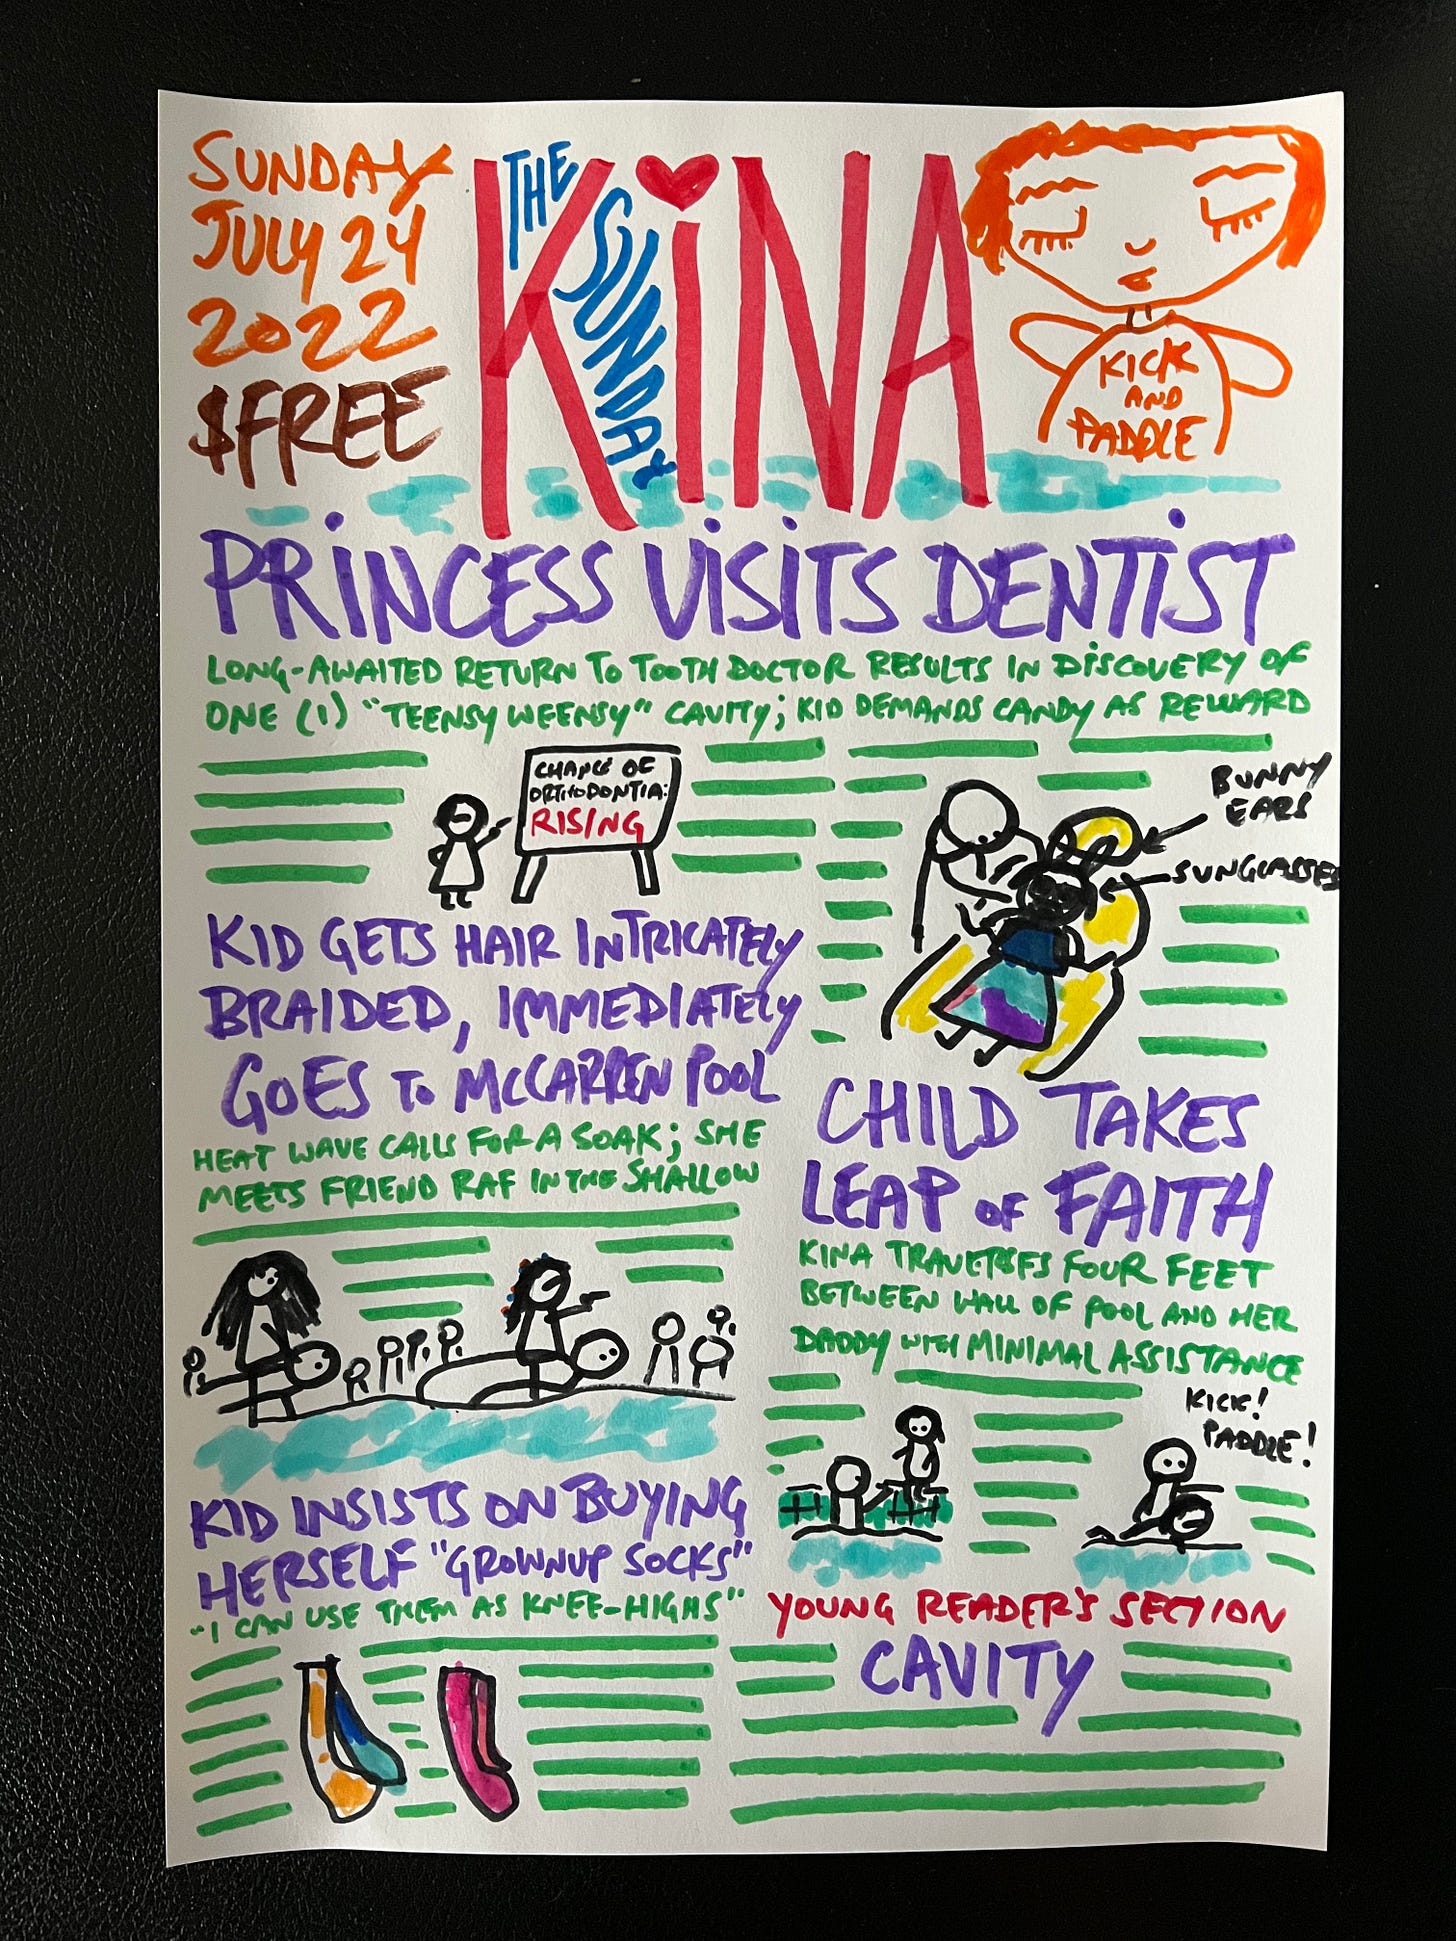 SUNDAY
JULY 24
2022
$FREE
THE
SUNDAY
KiNA
KICK
AND
PADDLE
PRiNCESS ViSiTS DENTiST
LONG-AWAITED RETURN TO TOOTH DOCTOR RESULTS IN DiSCOVERY OF
ONE (1) "TEENSY WEENSY" CAVITY; KID DEMANDS CANDY AS REWARD
CHANCE OF
ORTHODONTIA:
RISING
BUNNY
EARS
SUNGLASSES
KID GETS HAIR INTRICATELY
BRAIDED, IMMEDIATELY
GOES TO MCCARREN POOL
HEAT WAVE CALLS FOR A SOAK; SHE
MEETS FRIEND RAF IN THE SHALLOW
CHILD TAKES
LEAP OF FAITH
KINA TRAVERSES FOUR FEET
BETWEEN WALL OF POOL AND HER
DADDY WITH MINIMAL ASSISTANCE
KICK!
PADDLE!
KID INSISTS ON BUYING
HERSELF "GROWNUP SOCKS"
"I CAN USE THEM AS KNEE-HIGHS"
YOUNG READER'S SECTION
CAVITY